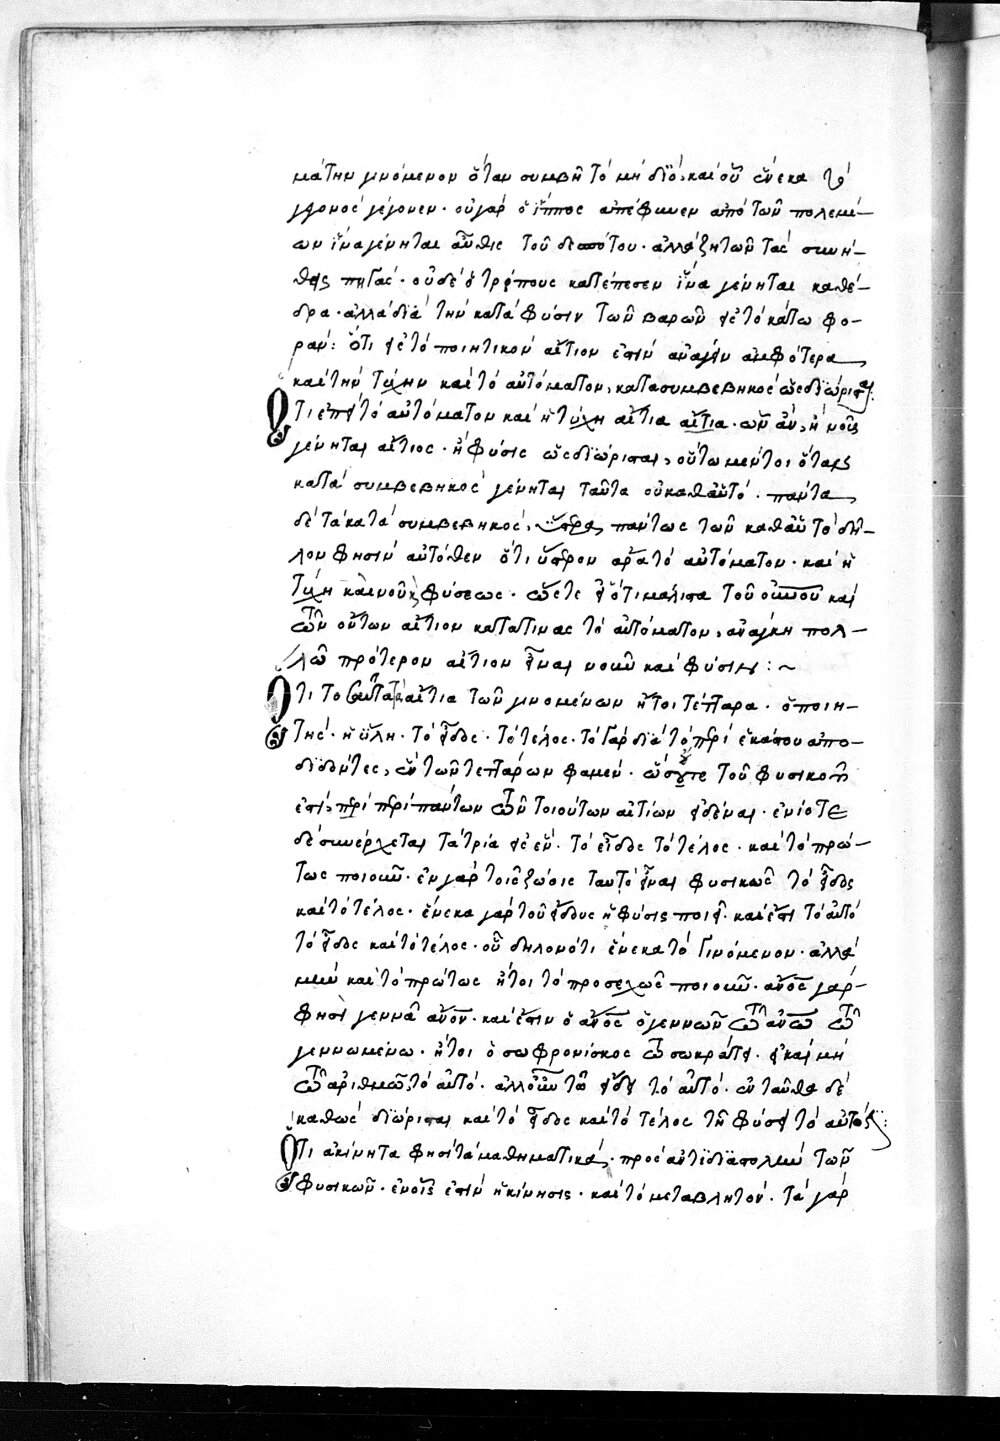 μάτην γινόμενον ὅταν συμβῆ τὸ μὴ διὸ, καὶ οὗ ἕνεκα τὸ
γεγονὸς γέγονεν. οὐ γὰρ ὁ ἵππος ἀπέφυγεν ἀπὸ τῶν πολεμί-
ων ἵνα γένηται αὖθις τοῦ δεσπότου. ἀλλὰ ζητῶν τὰς συνή-
θεις πηγάς. οὐδὲ ὁ τρίπους κατέπεσεν ἵνα γένηται καθέ-
δρα. ἀλλὰ διὰ τὴν κατὰ φύσιν τῶν βαρῶν εἰς τὸ κάτω φο-
ράν: ὅτι εἰς τὸ ποιητικὸν αἴτιον ἐστὶν ἀνάγειν ἀμφότερα
καὶ τὴν τύχην καὶ τὸ αὐτόματον, κατὰ συμβεβηκὸς ὡς διώρισται.
Ὅτι ἐπεὶ τὸ αὐτόματον καὶ ἡ τύχη αἴτια αἴτια. ὧν ἂν, ἢ νοῦς
γένηται αἴτιος. ἢ φύσις ὡς διώρισται, οὕτω μέντοι ὅταν
κατὰ συμβεβηκὸς γένηται ταῦτα οὐ καθαὑτό. πάντα
δὲ τὰ κατὰ συμβεβηκὸς, ὕστερα πάντως τῶν καθαὑτὸ δῆ-
λον φησὶν αὐτόθεν ὅτι ὕστερον ἄρα τὸ αὐτόματον. καὶ ἡ
τύχη καὶ νοῦ καὶ φύσεως. ὥστε εἰ ὅτι μάλιστα τοῦ οὐρανοῦ καὶ
τῶν ὄντων αἴτιον κατά τινας τὸ αὐτόματον, ἀνάγκη πολ-
λῶ πρότερον αἴτιον εἶναι νοῦν καὶ φύσιν: ~
Ὅτι τοσαῦτα τὰ αἴτια τῶν γινομένων ἤτοι τέτταρα. ὁ ποιη-
τής. ἡ ὕλη. τὸ εἶδος. τὸ τέλος. τὸ γὰρ διὰ τὸ περὶ ἑκάστου ἀπο-
διδόντες, ἓν τῶν τεττάρων φαμέν. ὥστε τοῦ φυσικοῦ
ἐστὶ, περὶ περὶ πάντων τῶν τοιούτων αἰτίων εἰδέναι. ἐνίοτε
δὲ συνέρχεται τὰ τρία εἰς ἕν. τὸ εἶδος τὸ τέλος. καὶ τὸ πρώ-
τως ποιοῦν. ἐν γὰρ τοῖς ζώοις ταὐτὸ εἶναι φυσικῶς τὸ εἶδος
καὶ τὸ τέλος. ἕνεκα γὰρ τοῦ εἴδους ἡ φύσις ποιεῖ. καὶ ἔστι τὸ αὐτὸ
τὸ εἶδος καὶ τὸ τέλος. οὗ δηλονότι ἕνεκα τὸ γινόμενον. ἀλλὰ
μὴν καὶ τὸ πρώτως ἤτοι τὸ προσεχῶς ποιοῦν. ἄνος γάρ
φησι γεννᾶ ἄνον. καὶ ἔστιν ὁ ἄνος ὁ γεννῶν τῶ ἀνω τῶ
γεννωμένω. ἤτοι ὁ σωφρονίσκος τῶ σωκράτει. εἰ καὶ μὴ
τῶ ἀριθμῶ τὸ αὐτό. ἀλλοῦν τῶ εἴδει τὸ αὐτό. ἐνταῦθα δὲ
καθὼς διώρισται καὶ τὸ εἶδος καὶ τὸ τέλος τῆ φύσει τὸ αὐτό ἐστι:
Ὅτι ἀκίνητα φησὶ τὰ μαθηματικά. πρὸς ἀντιδιαστολὴν τῶν
φυσικῶν. ἐν οἷς ἐστὶν ἡ κίνησις. καὶ τὸ μεταβλητόν. τὰ γὰρ